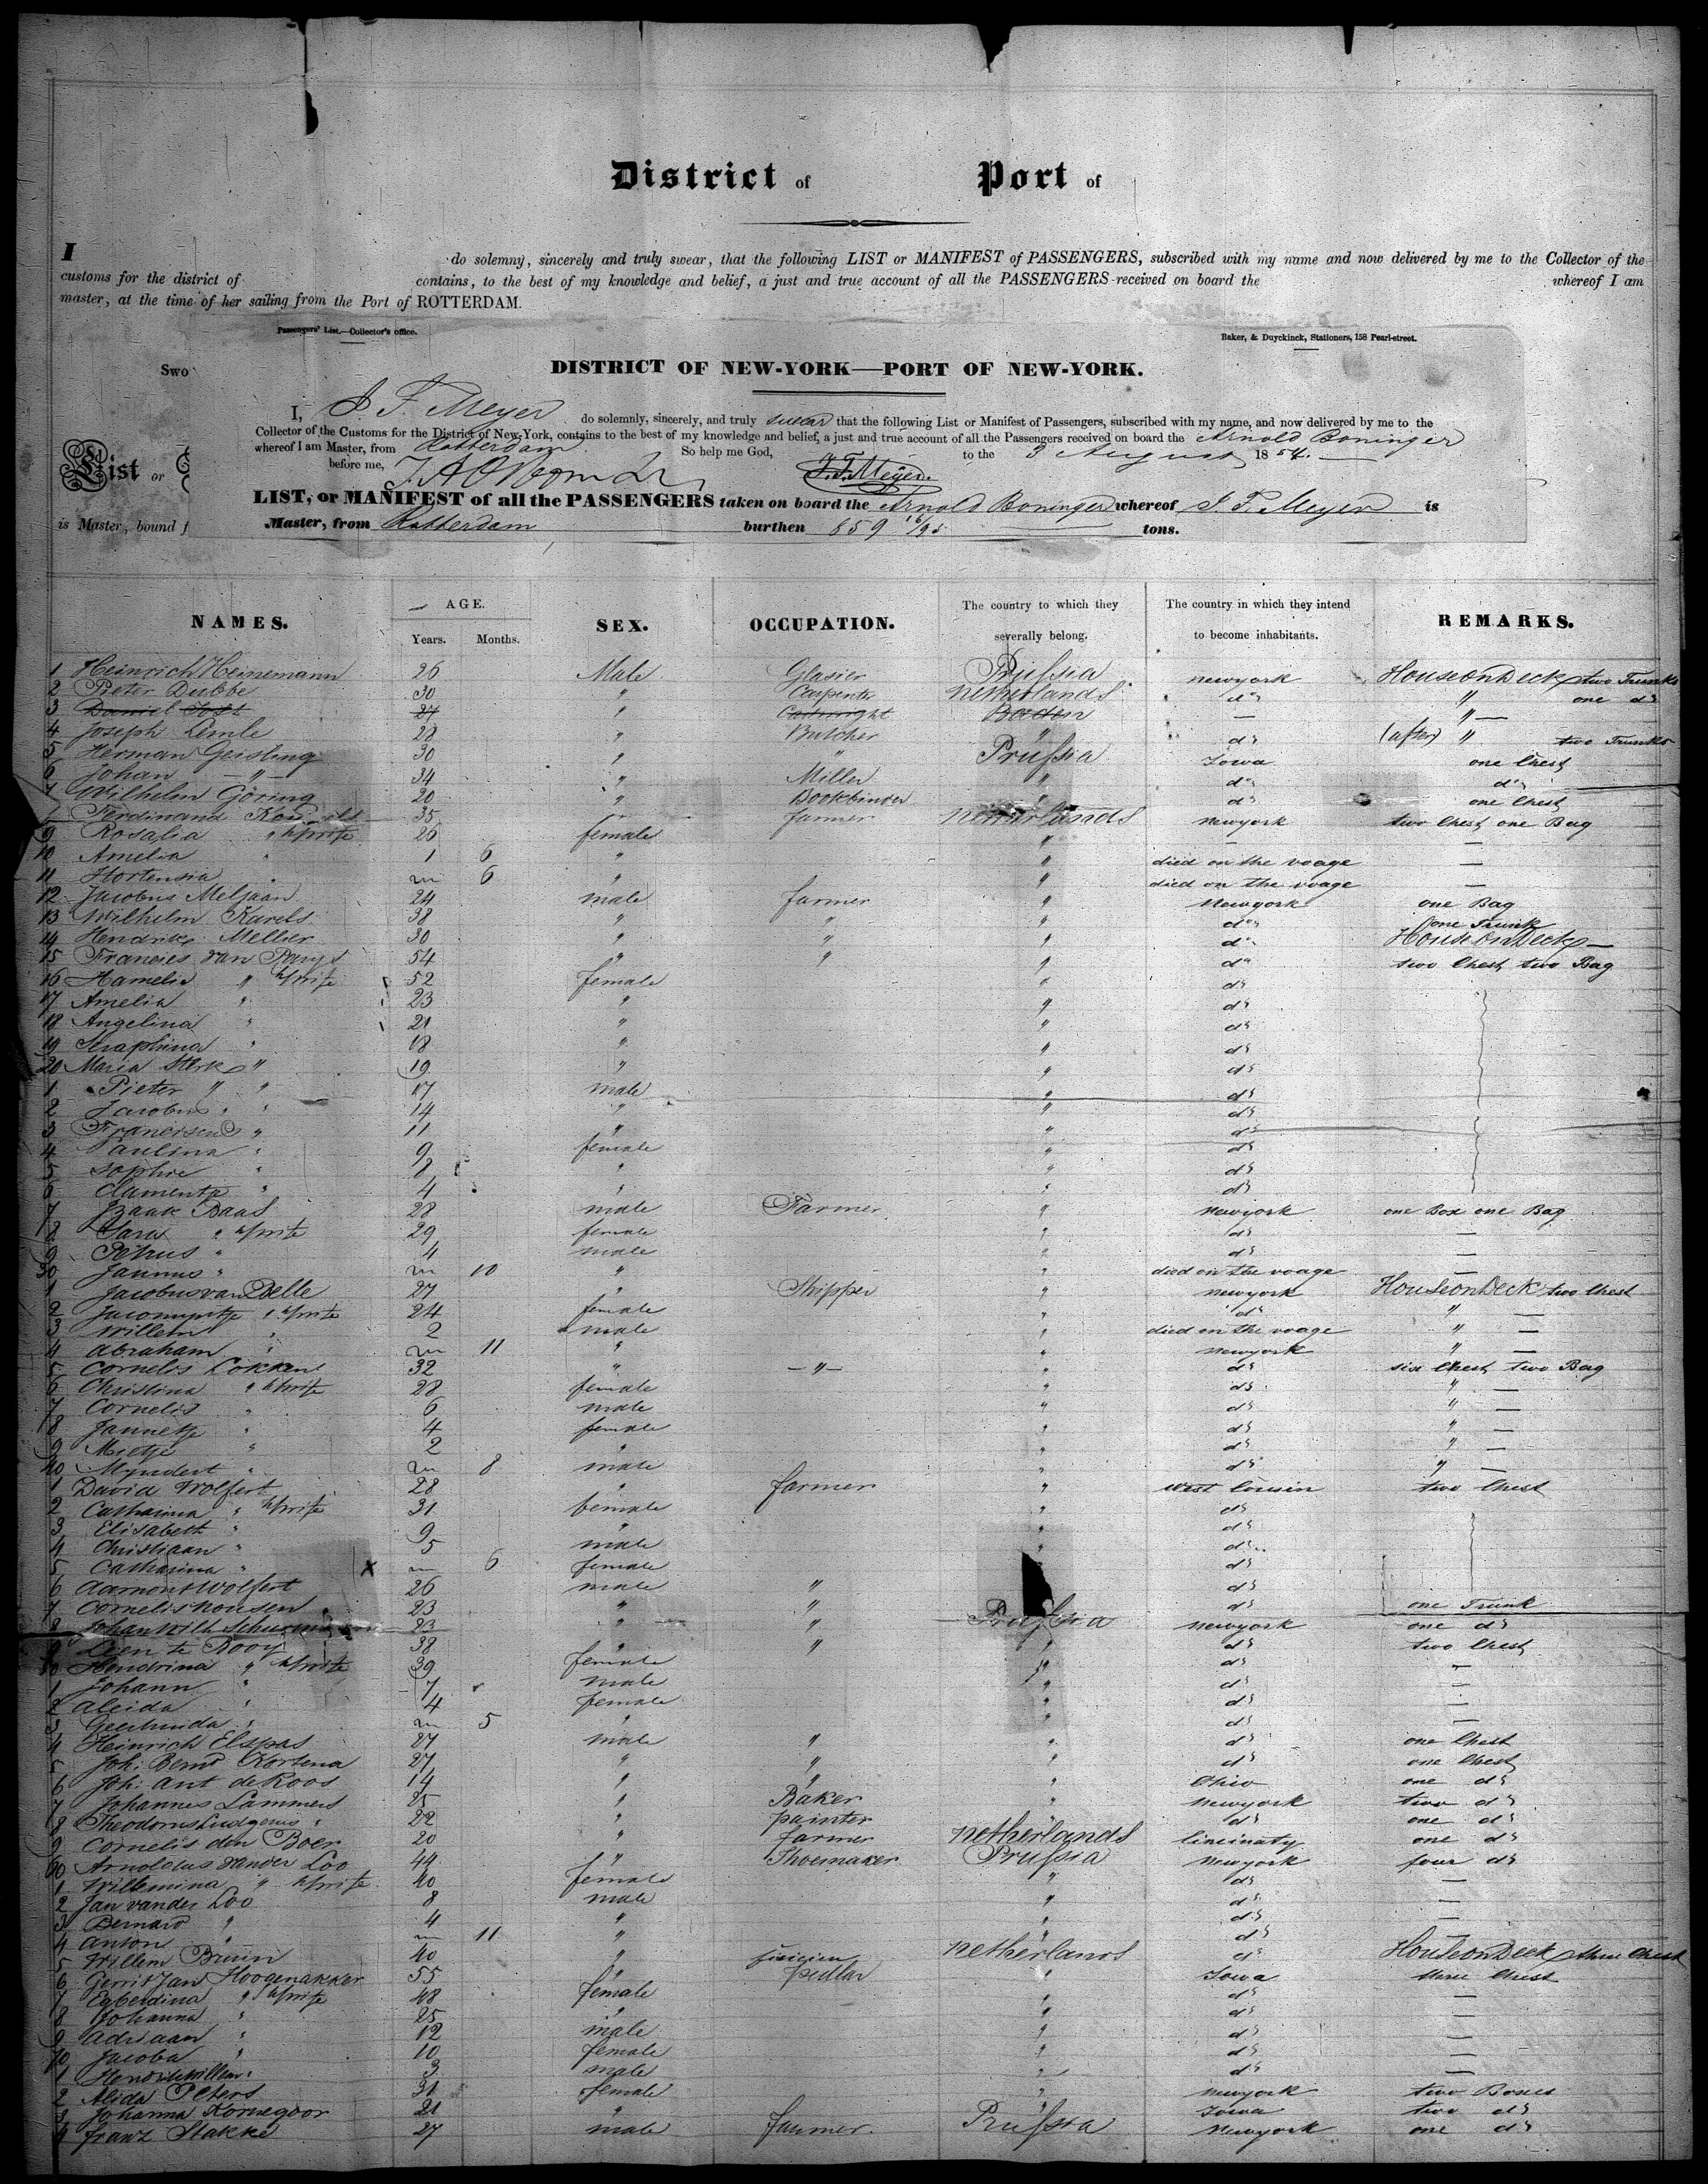 District of Port of
I do solemny, sincerely and truly swear, that the following LIST or MANIFEST of PASSENGERS, subscribed with my name and now delivered by me to the Collector of the
customs for the district of contains, to the best of my knowledge and belief, a just and true account of all the PASSENGERS received on board the whereof I am
master, at the time of her sailing from the Port of ROTTERDAM.
Passengers' List.—Collector's office. Baker, & Duyckinck, Stationers, 158 Pearl-street.
Swo
DISTRICT OF NEW-YORK—PORT OF NEW-YORK.
I, J. F. Meyer do solemnly, sincerely, and truly swear that the following List or Manifest of Passengers, subscribed with my name, and now delivered by me to the
Collector of the Customs for the District of New-York, contains to the best of my knowledge and belief, a just and true account of all the Passengers received on board the Arnold Boninger
whereof I am Master, from Rotterdam So help me God, to the 3 August 1854.
before me, J. F. Meyer.
List or
LIST, or MANIFEST of all the PASSENGERS taken on board the Arnold Boninger whereof J. F. Meyer is
is Master, bound f
Master, from Rotterdam burthen 859 16/95 tons.
NAMES. AGE. Years. Months. SEX. OCCUPATION. The country to which they severally belong. The country in which they intend to become inhabitants. REMARKS.
1 Heinrich Heinemann 26 Male Glasier Prussia newyork House on Deck two Trunks
2 Pieter Dubbe 30 " Carpenter Netherlands do " one do
3 Daniel 27 " Baden — " —
4 Joseph Lemle 28 " Butcher " do (after) " two Trunks
5 Herman Geisling 30 " " Prussia Iowa one Chest
6 Johan — " — 34 " Miller " do do
7 Wilhelm Göring 20 " Bookbinder " do one Chest
Ferdinand 35 farmer Netherlands Newyork two Chest one Bag
9 Rosalia " wife 26 female " — —
10 Amelia " 1 6 " " died on the voage —
11 Hortensia " m 6 " " died on the voage —
12 Jacobus Meljaan 24 male farmer " Newyork one Bag
13 Wilhelm Karels 38 " " " do one Trunk
14 Hendrik Mellier 30 " " " do House on Deck —
15 Francies van 54 " " " do two Chest two Bag
16 Hamelia " wife 52 female " do
17 Amelia " 23 " " do
18 Angelina " 21 " " do
19 Seraphina " 18 " " do
20 Maria Sterk " 19 " " do
1 Pieter " " 17 male " do
2 Jacobus " " 14 " " do
3 Franciscus " 11 " " do
4 Paulina " 9 female " do
5 Sophie " 8 " " do
6 Clamentje " 4 " " do
7 Izaak Baas 28 male Farmer " newyork one Box one Bag
8 Sara " wife 29 female " do —
9 Petrus " 4 male " do —
30 Jannus " m 10 " " died on the voage —
1 Jacobus van Belle 27 " Shipper " newyork House on Deck two Chest
2 Jacomyntje " wife 24 female " do " —
3 Willem " 2 male " died on the voage " —
4 Abraham " m 11 " " newyork " —
5 Cornelis Lokken 32 " — " — " do six Chest two Bag
6 Christina " wife 28 female " do " —
7 Cornelis " 6 male " do " —
8 Jannetje " 4 female " do " —
9 Mietje " 2 " " do " —
40 Myndert " m 8 male " do " —
1 David Wolfert 28 " farmer " west Consin two Chest
2 Catharina " wife 31 female " do
3 Elisabeth " 9 " " do
4 Christiaan " 5 male " do
5 Catharina " x m 6 female do
6 Aarnout Wolfert 26 male " do
7 Cornelis Housen 23 " " do one Trunk
8 Johan Wilh. 23 " " Prussia newyork one do
9 te Rooy 38 " " " do two Chest
50 Hendrina " wife 39 female " do —
1 Johann " 7 male " do —
2 Aleida " 4 female " do —
3 " m 5 " " do —
4 Heinrich Elspas 27 male " " do one Chest
5 Joh. Bernd Kortena 27 " " " do one Chest
6 Joh. Ant de Roos 14 " " " Ohio one do
7 Johannes Lammers 25 " Baker " newyork two do
8 Theodorus 22 " painter " do one do
9 Cornelis den Boer 20 " farmer Netherlands Cincinaty one do
60 Arnoldus vander Loo 44 " Shoemaker Prussia newyork four do
1 Willemina " wife 40 female " do —
2 Jan vander Loo 8 male " do —
3 Bernard " 4 " " do —
4 Anton " m 11 " " do —
5 Willem Bruin 40 " Netherlands do House on Deck three Chest
6 Gerrit Jan Hoogenakker 55 " pedlar " Iowa three Chest
7 Egberdina " wife 48 female " do —
8 Johanna " 25 " " do —
9 Adriaan " 12 male " do —
70 Jacoba " 10 female " do —
1 Hendrik Willem " 3 male " do —
2 Alida Peters 31 female " newyork two Boxes
3 Johanna Kornegoor 21 " " Iowa two do
4 Franz Stakke 27 male farmer. Prussia Newyork one do